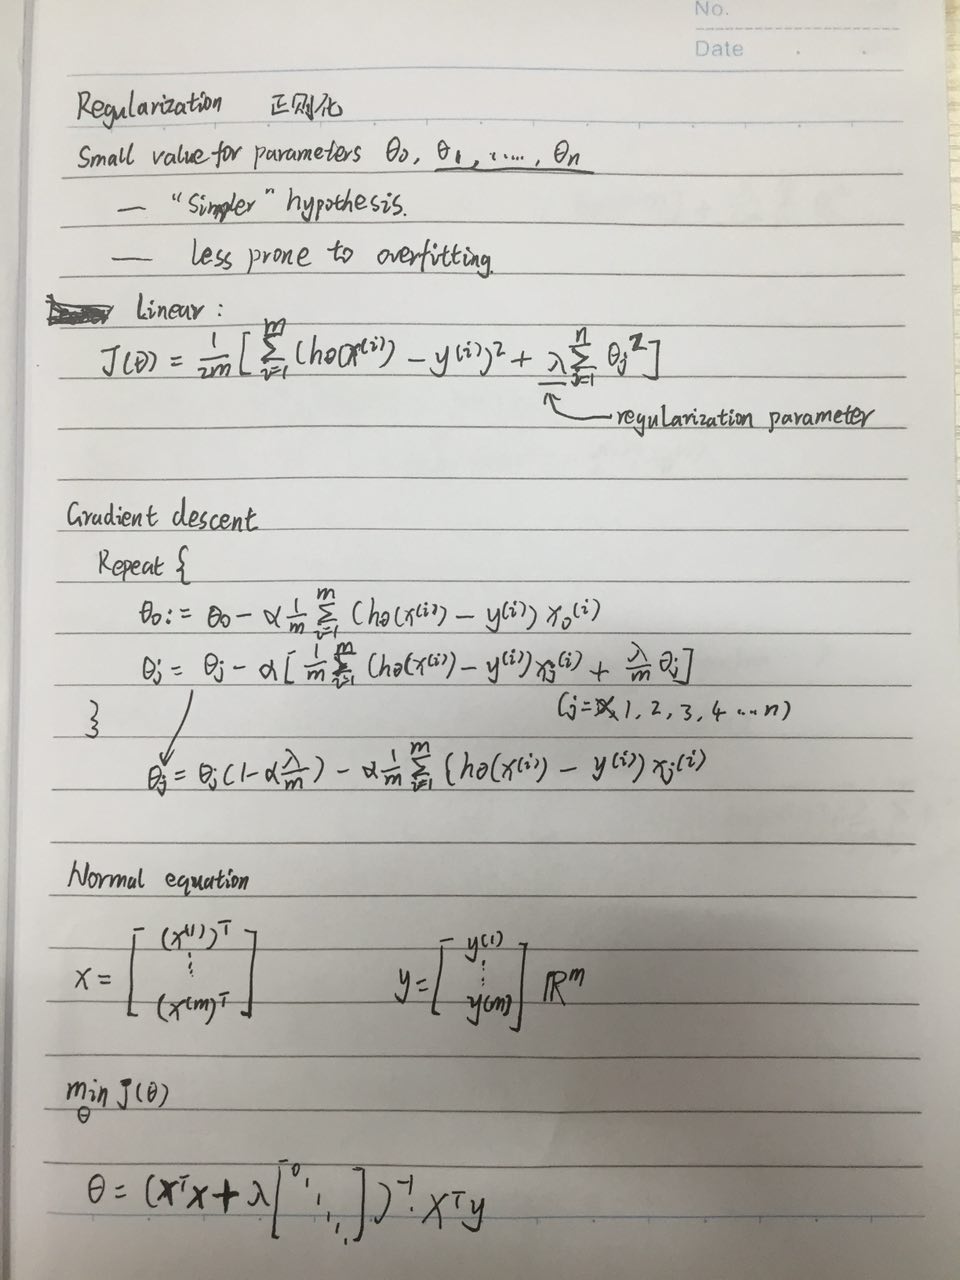 No.
Date
Regularization 正则化
Small value for parameters θ₀, θ₁, ....., θn
— "Simpler" hypothesis.
— less prone to overfitting.
Linear :
J(θ) = 1/2m [ Σᵢ₌₁ᵐ (hθ(x⁽ⁱ⁾) − y⁽ⁱ⁾)² + λ Σⱼ₌₁ⁿ θⱼ² ]
regularization parameter
Gradient descent
Repeat {
θ₀ := θ₀ − α 1/m Σᵢ₌₁ᵐ (hθ(x⁽ⁱ⁾) − y⁽ⁱ⁾) x₀⁽ⁱ⁾
θⱼ = θⱼ − α [ 1/m Σᵢ₌₁ᵐ (hθ(x⁽ⁱ⁾) − y⁽ⁱ⁾) xⱼ⁽ⁱ⁾ + λ/m θⱼ ]
(j = 1, 2, 3, 4 ... n)
}
θⱼ = θⱼ (1 − α λ/m) − α 1/m Σᵢ₌₁ᵐ (hθ(x⁽ⁱ⁾) − y⁽ⁱ⁾) xⱼ⁽ⁱ⁾
Normal equation
X = [ (x⁽¹⁾)ᵀ ⋮ (x⁽ᵐ⁾)ᵀ ] y = [ y⁽¹⁾ ⋮ y⁽ᵐ⁾ ] ℝᵐ
min J(θ)
θ
θ = (XᵀX + λ [ 0 1 1 1 1 ])⁻¹ · Xᵀy